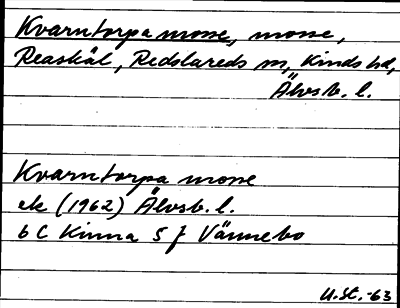 Kvarntorpa mosse, mosse,
Reaskäl, Redslareds sn, Kinds hd,
Älvsb. l.
Kvarntorpa mosse
ek (1962) Älvsb. l.
6 C Kinna 5 j Vännebo
U.St.-63